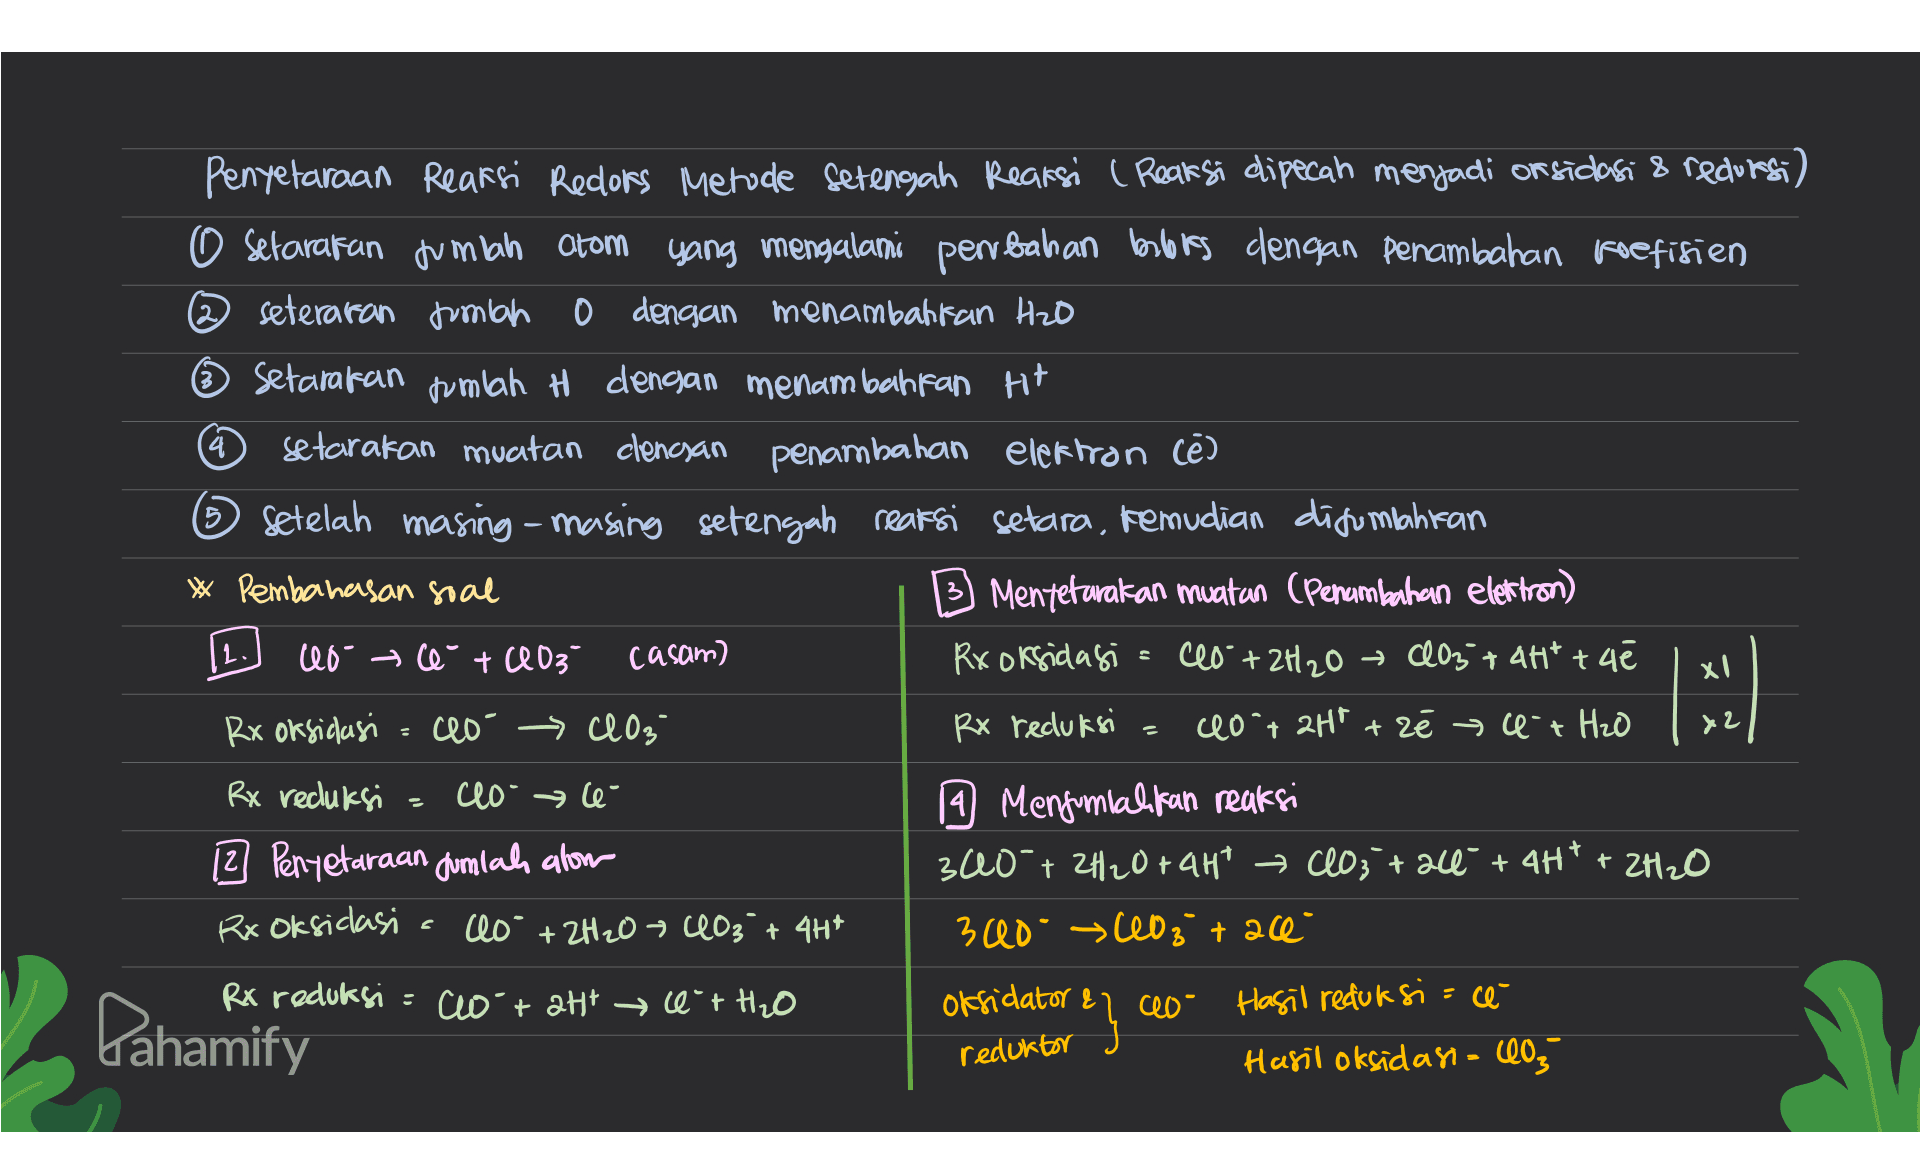 Penyetaraan Reaksi Redoks Metode Setengah Reaksi (Reaksi dipecah menjadi oksidasi & reduksi)
① Setarakan jumlah atom yang mengalami perubahan biloks dengan Penambahan koefisien
② setarakan jumlah O dengan menambahkan H₂O
③ Setarakan jumlah H dengan menambahkan H⁺
④ setarakan muatan dengan penambahan elektron (ē)
⑤ Setelah masing-masing setengah reaksi setara, kemudian dijumlahkan
※ Pembahasan soal
1. ClO⁻ → Cl⁻ + ClO₃⁻ (asam)
Rx oksidasi = ClO⁻ → ClO₃⁻
Rx reduksi = ClO⁻ → Cl⁻
2 Penyetaraan jumlah atom
Rx Oksidasi = ClO⁻ + 2H₂O → ClO₃⁻ + 4H⁺
Rx reduksi = ClO⁻ + 2H⁺ → Cl⁻ + H₂O
3 Menyetarakan muatan (Penambahan elektron)
Rx oksidasi = ClO⁻ + 2H₂O → ClO₃⁻ + 4H⁺ + 4ē | x1 |
Rx reduksi = ClO⁻ + 2H⁺ + 2ē → Cl⁻ + H₂O | x2 |
4 Menjumlahkan reaksi
3ClO⁻ + 2H₂O + 4H⁺ → ClO₃⁻ + 2Cl⁻ + 4H⁺ + 2H₂O
3ClO⁻ → ClO₃⁻ + 2Cl⁻
oksidator & reduktor } ClO⁻ Hasil reduksi = Cl⁻
Hasil oksidasi = ClO₃⁻
Pahamify